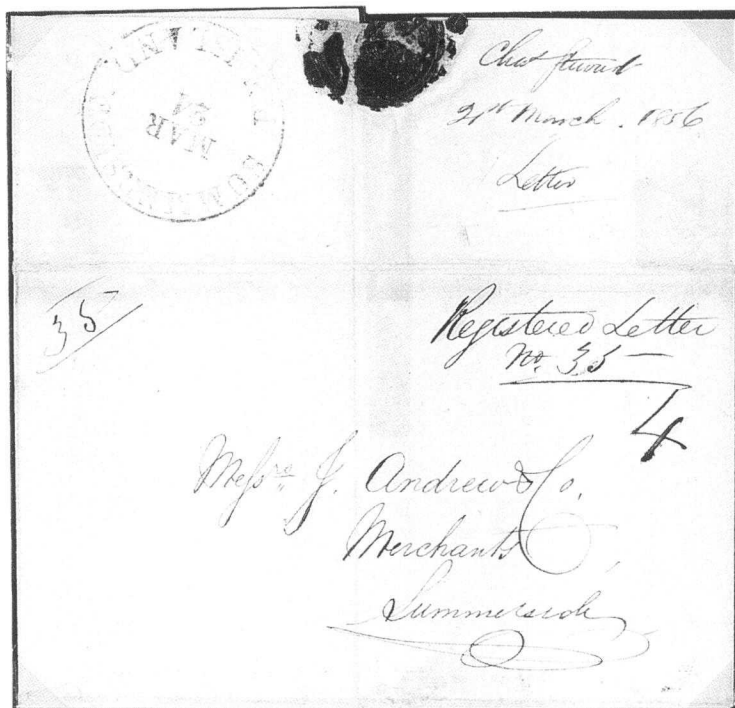 MAR
24
21st March. 1856
Letter
35
Registered Letter
No. 35
4
Messrs J. Andrew & Co.
Merchants,
Summerside